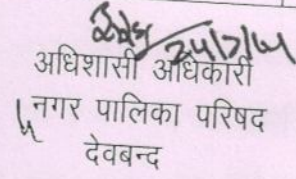 अधिशासी अधिकारी
नगर पालिका परिषद
देवबन्द